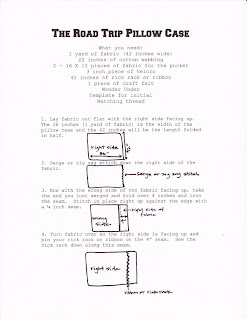 THE ROAD TRIP PILLOW CASE
What you need:
1 yard of fabric (42 inches wide)
22 inches of cotton webbing
2 - 16 X 12 pieces of fabric for the pocket
3 inch piece of Velcro
42 inches of rick rack or ribbon
1 piece of craft felt
Wonder Under
Template for initial
Matching thread
1. Lay fabric out flat with the right side facing up.
The 36 inches (1 yard of fabric) is the width of the
pillow case and the 42 inches will be the length folded
in half.
right side
2. Serge or zig zag stitch down the right side of the
fabric.
Serge or zig zag stitch
3. Now with the wrong side of the fabric facing up, take
the end you just serged and fold over 4 inches and iron
the seam. Stitch in place right up against the edge with
a ¼ inch seam.
wrong side
right side of
fabric
4. Turn fabric over so the right side is facing up and
pin your rick rack or ribbon on the 4" seam. Sew the
rick rack down along this seam.
right side
ribbon or rick rack